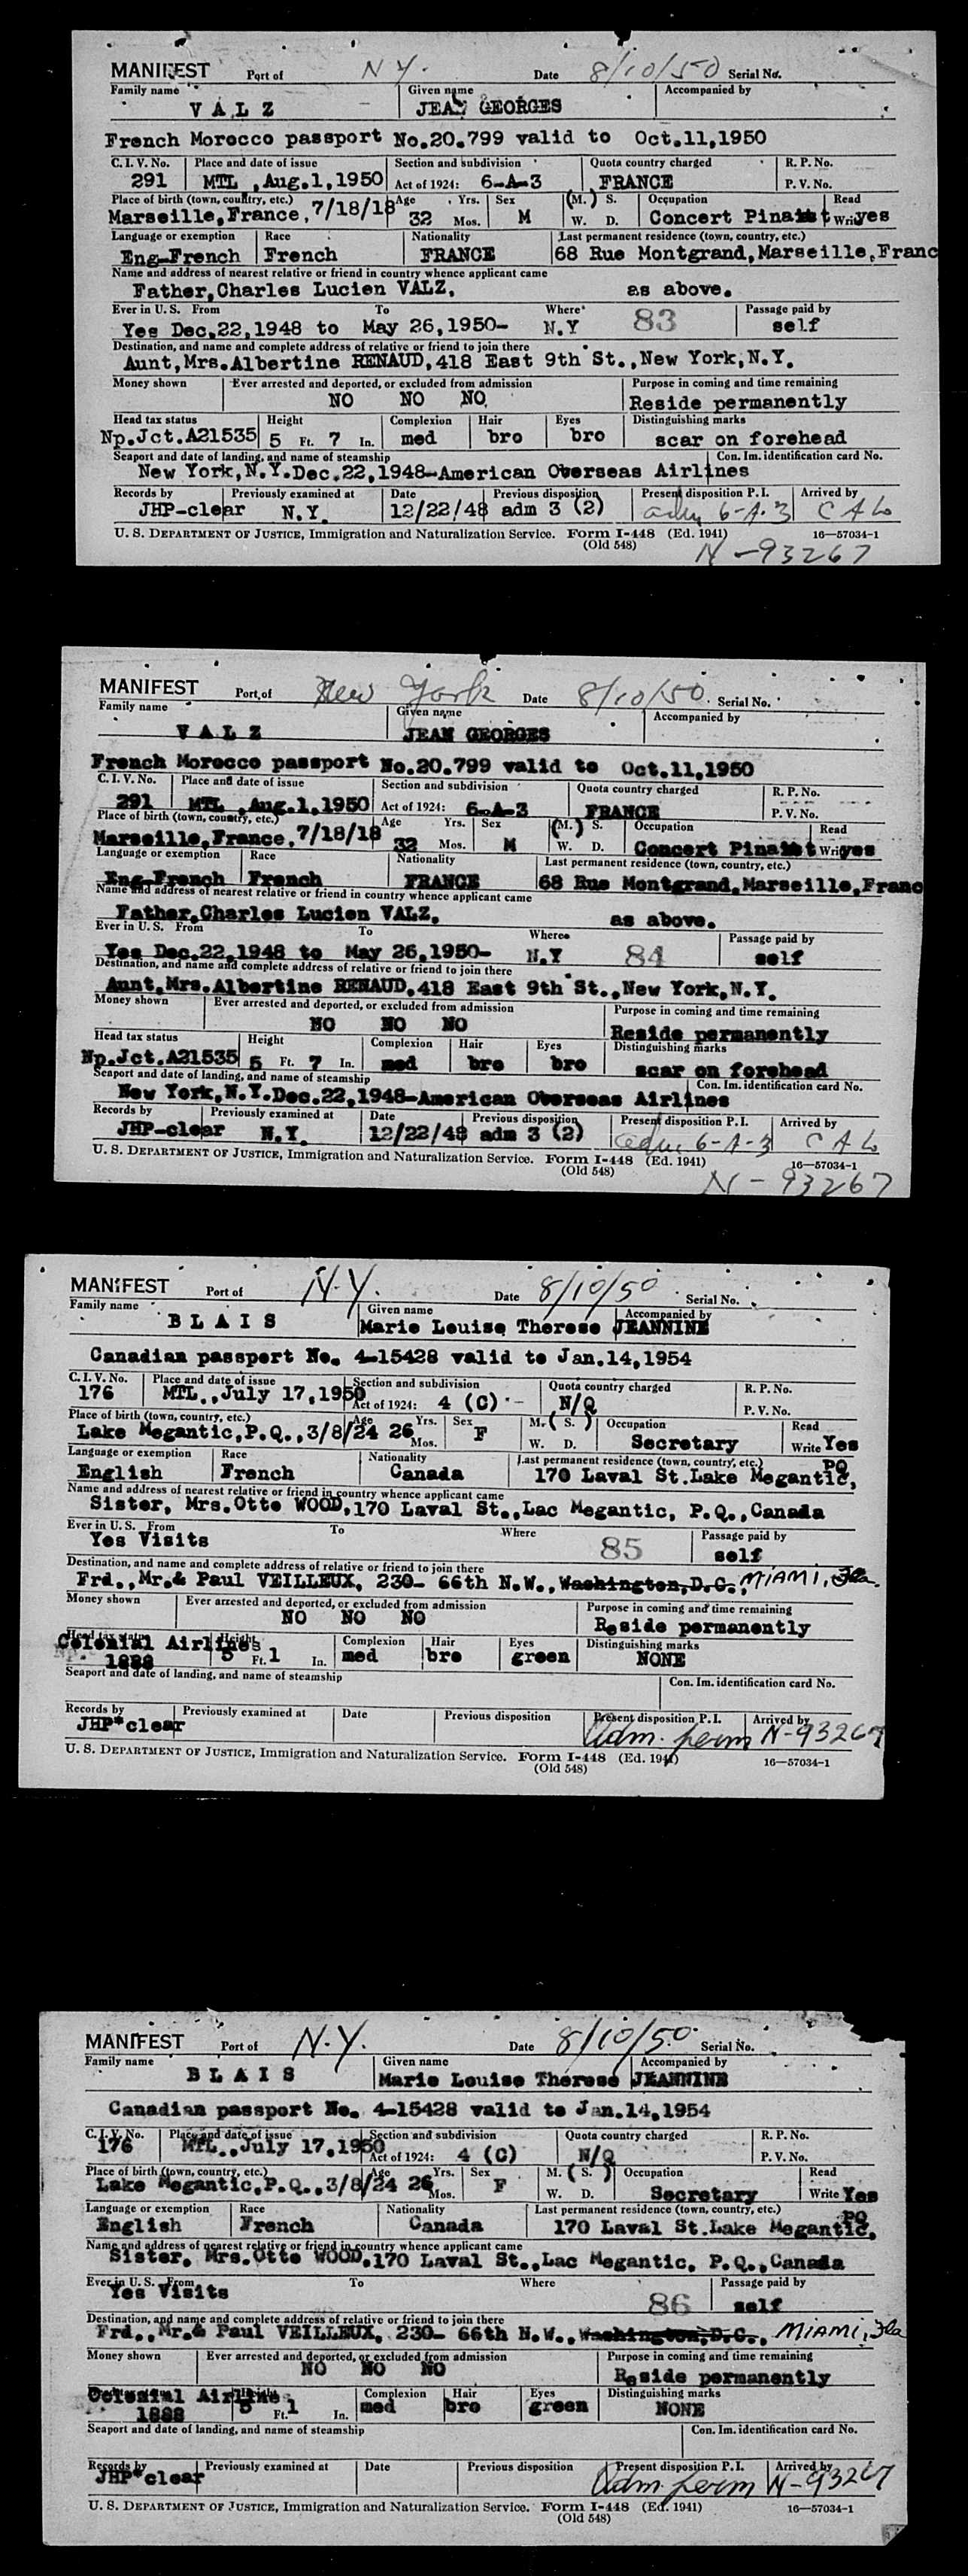 MANIFEST Port of N Y. Date 8/10/50 Serial No.
Family name Given name Accompanied by
V A L Z JEAN GEORGES
French Morocco passport No.20.799 valid to Oct.11,1950
C. I. V. No. Place and date of issue Section and subdivision Quota country charged R. P. No.
291 MTL ,Aug.1,1950 Act of 1924: 6-A-3 FRANCE P. V. No.
Place of birth (town, country, etc.) Age Yrs. Sex (M.) S. Occupation Read
Marseille,France,7/18/18 32 Mos. M W. D. Concert Pinaist Write yes
Language or exemption Race Nationality Last permanent residence (town, country, etc.)
Eng-French French FRANCE 68 Rue Montgrand,Marseille,Franc
Name and address of nearest relative or friend in country whence applicant came
Father,Charles Lucien VALZ, as above.
Ever in U. S. From To Where Passage paid by
Yes Dec,22,1948 to May 26,1950- N.Y 83 self
Destination, and name and complete address of relative or friend to join there
Aunt,Mrs.Albertine RENAUD,418 East 9th St.,New York,N.Y.
Money shown Ever arrested and deported, or excluded from admission Purpose in coming and time remaining
NO NO NO Reside permanently
Head tax status Height Complexion Hair Eyes Distinguishing marks
Np.Jct.A21535 5 Ft. 7 In. med bro bro scar on forehead
Seaport and date of landing, and name of steamship Con. Im. identification card No.
New York,N.Y.Dec.22,1948-American Overseas Airlines
Records by Previously examined at Date Previous disposition Present disposition P. I. Arrived by
JHP-clear N.Y. 12/22/48 adm 3 (2) adm 6-A-3 C A L
U. S. DEPARTMENT OF JUSTICE, Immigration and Naturalization Service. Form I-448 (Ed. 1941) 16—57034-1
(Old 548)
N-93267
MANIFEST Port of New York Date 8/10/50 Serial No.
Family name Given name Accompanied by
V A L Z JEAN GEORGES
French Morocco passport No.20.799 valid to Oct.11,1950
C. I. V. No. Place and date of issue Section and subdivision Quota country charged R. P. No.
291 MTL ,Aug.1,1950 Act of 1924: 6-A-3 FRANCE P. V. No.
Place of birth (town, country, etc.) Age Yrs. Sex (M.) S. Occupation Read
Marseille,France,7/18/18 32 Mos. M W. D. Concert Pinaist Write yes
Language or exemption Race Nationality Last permanent residence (town, country, etc.)
Eng-French French FRANCE 68 Rue Montgrand,Marseille,Franc
Name and address of nearest relative or friend in country whence applicant came
Father,Charles Lucien VALZ, as above.
Ever in U. S. From To Where Passage paid by
Yes Dec,22,1948 to May 26,1950- N.Y 84 self
Destination, and name and complete address of relative or friend to join there
Aunt,Mrs.Albertine RENAUD,418 East 9th St.,New York,N.Y.
Money shown Ever arrested and deported, or excluded from admission Purpose in coming and time remaining
NO NO NO Reside permanently
Head tax status Height Complexion Hair Eyes Distinguishing marks
Np.Jct.A21535 5 Ft. 7 In. med bro bro scar on forehead
Seaport and date of landing, and name of steamship Con. Im. identification card No.
New York,N.Y.Dec.22,1948-American Overseas Airlines
Records by Previously examined at Date Previous disposition Present disposition P. I. Arrived by
JHP-clear N.Y. 12/22/48 adm 3 (2) adm 6-A-3 C A L
U. S. DEPARTMENT OF JUSTICE, Immigration and Naturalization Service. Form I-448 (Ed. 1941) 16—57034-1
(Old 548)
N-93267
MANIFEST Port of N.Y. Date 8/10/50 Serial No.
Family name Given name Accompanied by
B L A I S Marie Louise Therese JEANNINE
Canadian passport No. 4-15428 valid to Jan.14,1954
C. I. V. No. Place and date of issue Section and subdivision Quota country charged R. P. No.
176 MTL.,July 17,1950 Act of 1924: 4 (C) N/Q P. V. No.
Place of birth (town, country, etc.) Age Yrs. Sex M. (S.) Occupation Read
Lake Megantic,P.Q.,3/8/24 26 Mos. F W. D. Secretary Write Yes
Language or exemption Race Nationality Last permanent residence (town, country, etc.) PQ
English French Canada 170 Laval St.Lake Megantic,
Name and address of nearest relative or friend in country whence applicant came
Sister, Mrs.Otto WOOD,170 Laval St.,Lac Megantic, P.Q.,Canada
Ever in U. S. From To Where Passage paid by
Yes Visits 85 self
Destination, and name and complete address of relative or friend to join there
Frd.,Mr.& Paul VEILLEUX, 230- 66th N.W.,Washington,D.C., MIAMI, Fla.
Money shown Ever arrested and deported, or excluded from admission Purpose in coming and time remaining
NO NO NO Reside permanently
Head tax status Height Complexion Hair Eyes Distinguishing marks
Colonial Airlines 5 Ft. 1 In. med bro green NONE
1888
Seaport and date of landing, and name of steamship Con. Im. identification card No.
Records by Previously examined at Date Previous disposition Present disposition P. I. Arrived by
JHP*clear Adm. perm N-93267
U. S. DEPARTMENT OF JUSTICE, Immigration and Naturalization Service. Form I-448 (Ed. 1941) 16—57034-1
(Old 548)
MANIFEST Port of N.Y. Date 8/10/50 Serial No.
Family name Given name Accompanied by
B L A I S Marie Louise Therese JEANNINE
Canadian passport No. 4-15428 valid to Jan.14,1954
C. I. V. No. Place and date of issue Section and subdivision Quota country charged R. P. No.
176 MTL.,July 17,1950 Act of 1924: 4 (C) N/Q P. V. No.
Place of birth (town, country, etc.) Age Yrs. Sex M. (S.) Occupation Read
Lake Megantic,P.Q.,3/8/24 26 Mos. F W. D. Secretary Write Yes
Language or exemption Race Nationality Last permanent residence (town, country, etc.) PQ
English French Canada 170 Laval St.Lake Megantic,
Name and address of nearest relative or friend in country whence applicant came
Sister, Mrs.Otto WOOD,170 Laval St.,Lac Megantic, P.Q.,Canada
Ever in U. S. From To Where Passage paid by
Yes Visits 86 self
Destination, and name and complete address of relative or friend to join there
Frd.,Mr.& Paul VEILLEUX, 230- 66th N.W.,Washington,D.C., MIAMI, Fla
Money shown Ever arrested and deported, or excluded from admission Purpose in coming and time remaining
NO NO NO Reside permanently
Height Complexion Hair Eyes Distinguishing marks
Colonial Airlines 5 Ft. 1 In. med bro green NONE
1888
Seaport and date of landing, and name of steamship Con. Im. identification card No.
Records by Previously examined at Date Previous disposition Present disposition P. I. Arrived by
JHP*clear Adm. perm N-93267
U. S. DEPARTMENT OF JUSTICE, Immigration and Naturalization Service. Form I-448 (Ed. 1941) 16—57034-1
(Old 548)